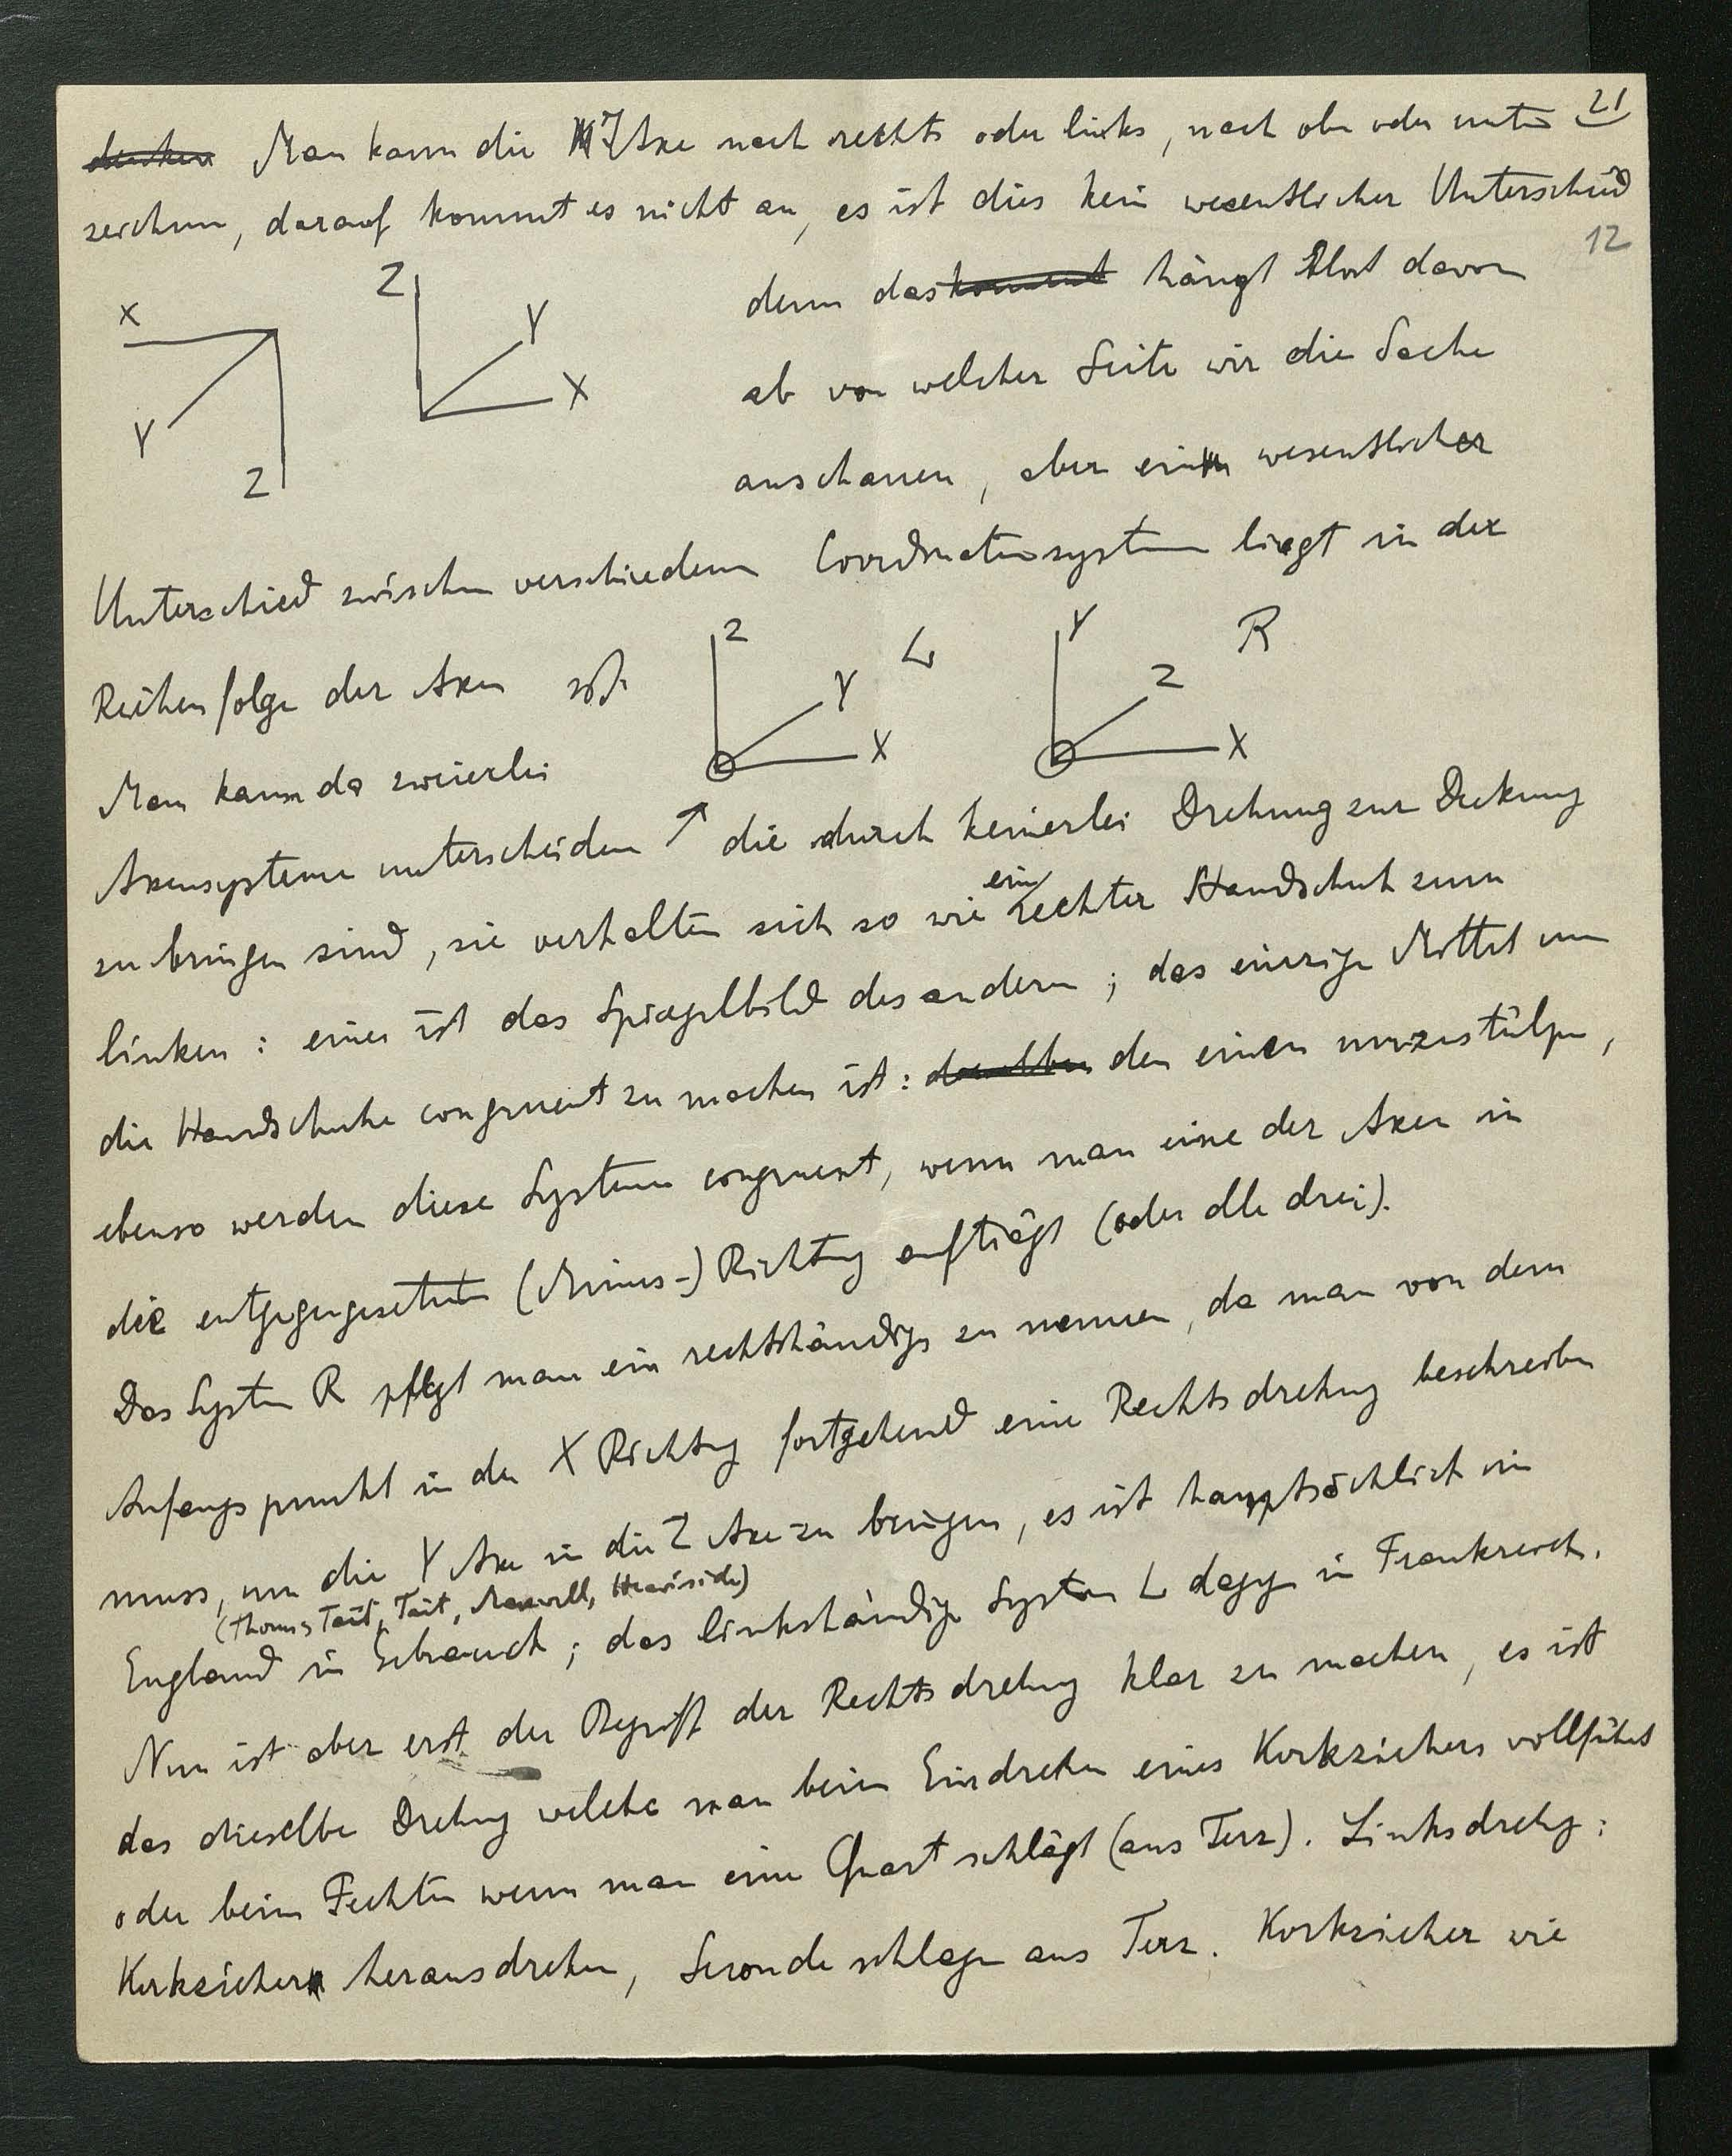 21
denken Man kann die Z Axe nach rechts oder links, nach oben oder unten
zeichnen, darauf kommt es nicht an, es ist dies kein wesentlicher Unterschied
12
denn das kommt hängt blos davon
ab von welcher Seite wir die Sache
anschauen, aber ein wesentlicher
X
Y
Z
Z
Y
X
Unterschied zwischen verschiedenen Coordinatensystemen liegt in der
Reihenfolge der Axen
Z
Y
X
L
Y
Z
X
R
Man kann da zweierlei
Axensysteme unterscheiden ↗ die durch keinerlei Drehung zur Deckung
zu bringen sind, sie verhalten sich so wie ein rechter Handschuh zum
linken: eines ist das Spiegelbild des anderen; das einzige Mittel um
die Handschuhe congruent zu machen ist: denselben den einen umzustülpen,
ebenso werden diese Systeme congruent, wenn man eine der Axen in
die entgegengesetzte (Minus-) Richtung aufträgt (oder alle drei).
Das System R pflegt man ein rechtshändiges zu nennen, da man von dem
Anfangspunkt in der X Richtung fortgehend eine Rechtsdrehung beschreiben
muss, um die Y Axe in die Z Axe zu bringen, es ist hauptsächlich in
(Thoms Tait, Tait, Maxwell, Heaviside)
England in Gebrauch; das linkshändige System L dagegen in Frankreich.
Nun ist aber erst der Begriff der Rechtsdrehung klar zu machen, es ist
das dieselbe Drehung welche man beim Eindrehen eines Korkziehers vollführt
oder beim Fechten wenn man eine Quart schlägt (aus Terz). Linksdrehung:
Korkzieher herausdrehen, Seconde schlagen aus Terz. Korkzieher wie